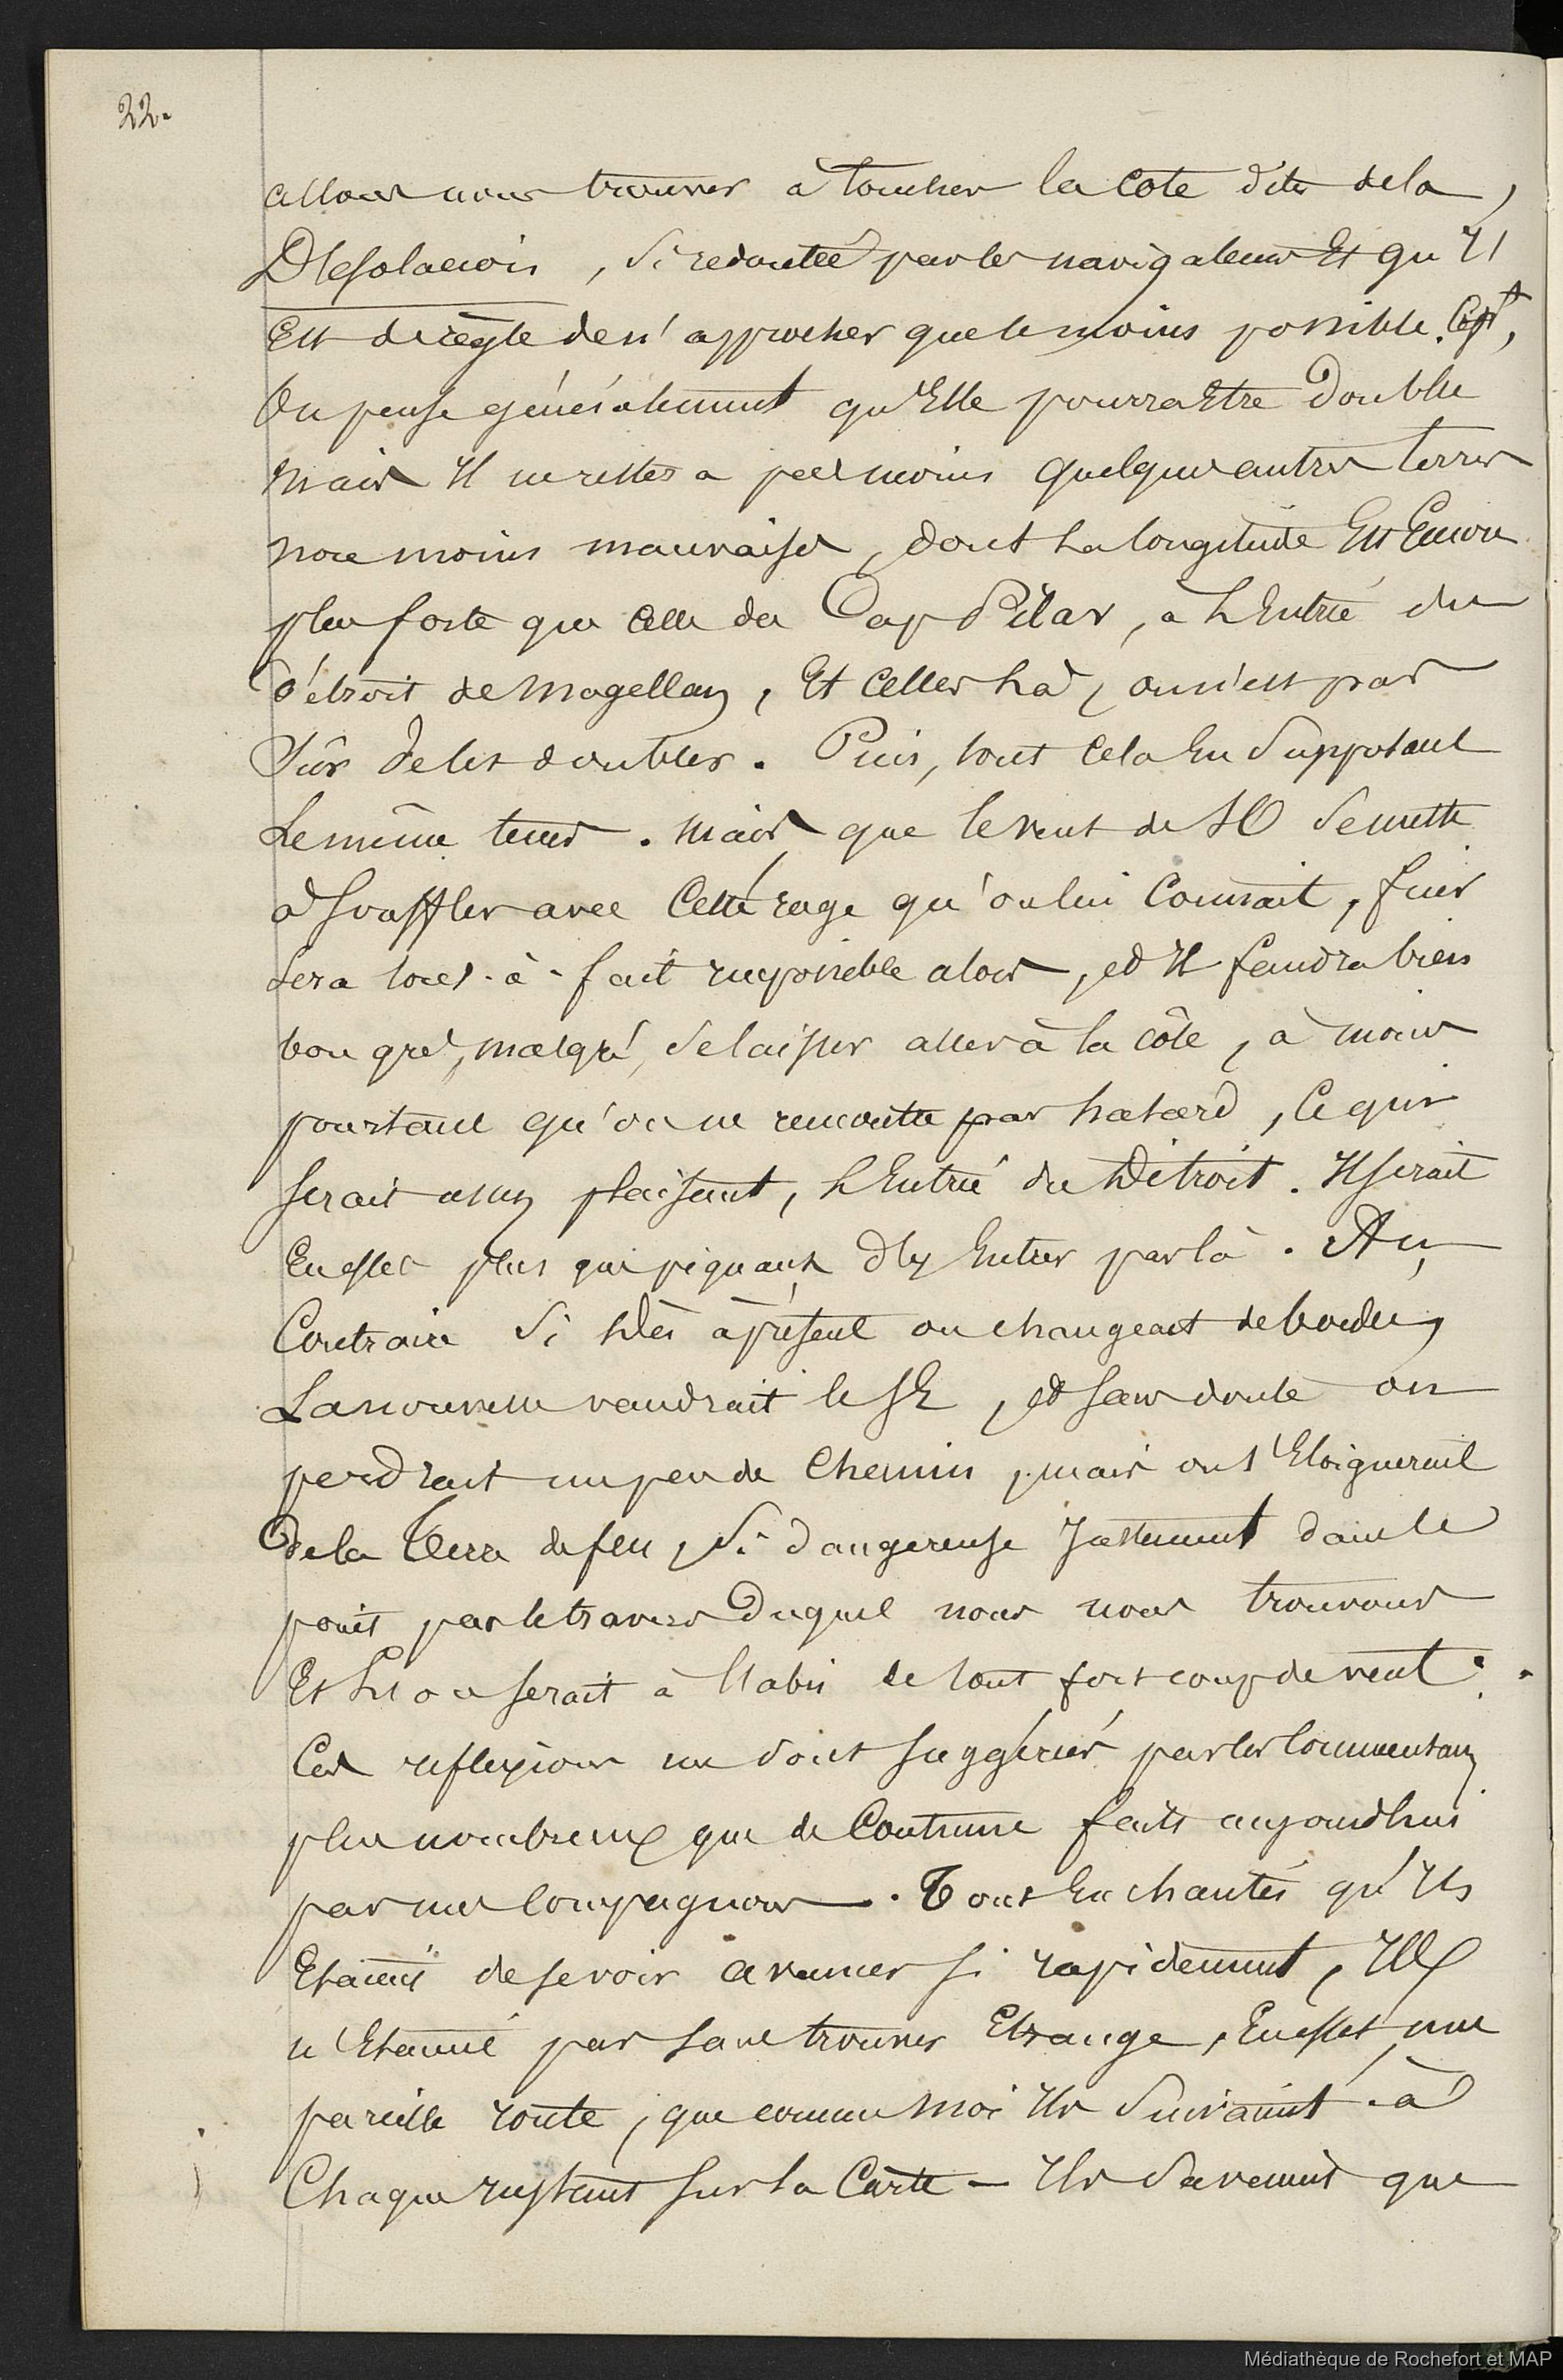 22.
allons nous trouver à toucher la cote dite de la
Désolation, si redoutée par les navigateurs et qu'il
est de règle de n'approcher que le moins possible.
On pense généralement qu'Elle pourra Etre doublée
mais Il ne restera pas moins quelques autres terres
non moins mauvaises, dont la longitude Est Encore
plus forte que celle du Cap Pilar, a l'Entrée du
détroit de Magellan, Et celles là, on n'est pas
sûr de les doubler. Puis, tout cela En supposant
le même tems. Mais que le vent de SO se mette
à souffler avec cette rage qu'on lui connait, fuir
sera tout-à-fait impossible alors, et Il faudra bien
bon gré, malgré, se laisser aller à la côte, à moins
pourtant qu'on ne rencontre par hasard, ce qui
serait assez plaisant, l'Entrée du Détroit. Il serait
En effet plus que piquant d'y Entrer par là. Au
Contraire si dès à présent on changeait de bordée,
La nouvelle vaudrait le SE, et sans doute on
perdrait un peu de chemin, mais on s'Eloignerait
de la Terre de feu, si dangereuse Justement dans le
point par le travers duquel nous nous trouvons
Et l'on serait à l'abri de tout fort coup de vent.
Ces reflexions me sont suggérées par les commentaires
plus nombreux que de Coutume faits aujourdhui
par mes compagnons. Tout Enchantés qu'Ils
Etaient de se voir avancer si rapidement, Ils
n'Etaient pas sans trouver Etrange, En effet, une
pareille route, que comme moi Ils suivaient à
Chaque instant sur la Carte - Ils savaient que
Médiathèque de Rochefort et MAP